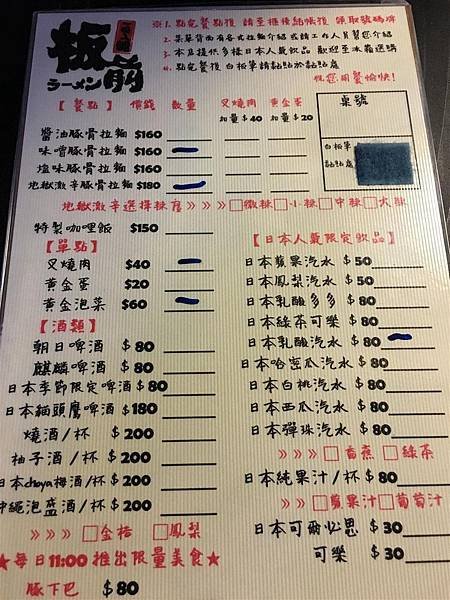 板前
ラーメン
※1. 點完餐點後 請至櫃檯結帳後 領取號碼牌
2. 菜單背面有各式拉麵介紹或請工作人員幫您介紹
3. 本店提供多樣日本人氣飲品 歡迎至冰箱選購
4. 點完餐後 白板筆請黏貼於黏貼處
祝您用餐愉快!
【餐點】 價錢 數量 叉燒肉 黃金蛋
加量$40 加量$20
桌號
白板筆
黏貼處
醬油豚骨拉麵 $160
味噌豚骨拉麵 $160
塩味豚骨拉麵 $160
地獄激辛豚骨拉麵 $180
地獄激辛選擇辣度 》》》□微辣□小辣□中辣□大辣
特製咖哩飯 $150
【單點】
叉燒肉 $40
黃金蛋 $20
黃金泡菜 $60
【酒類】
朝日啤酒 $80
麒麟啤酒 $80
日本季節限定啤酒 $80
日本貓頭鷹啤酒 $180
燒酒/杯 $200
柚子酒/杯 $200
日本choya梅酒/杯 $200
沖繩泡盛酒/杯 $200
》》》□金桔 □鳳梨
★每日11:00推出限量美食★
豚下巴 $80
【日本人氣限定飲品】
日本蘋果汽水 $50
日本鳳梨汽水 $50
日本乳酸多多 $80
日本綠茶可樂 $80
日本乳酸汽水 $80
日本哈密瓜汽水 $80
日本白桃汽水 $80
日本西瓜汽水 $80
日本彈珠汽水 $80
》》》□香蕉 □綠茶
日本純果汁/杯 $80
》》□蘋果汁□葡萄汁
日本可爾必思 $30
可樂 $30